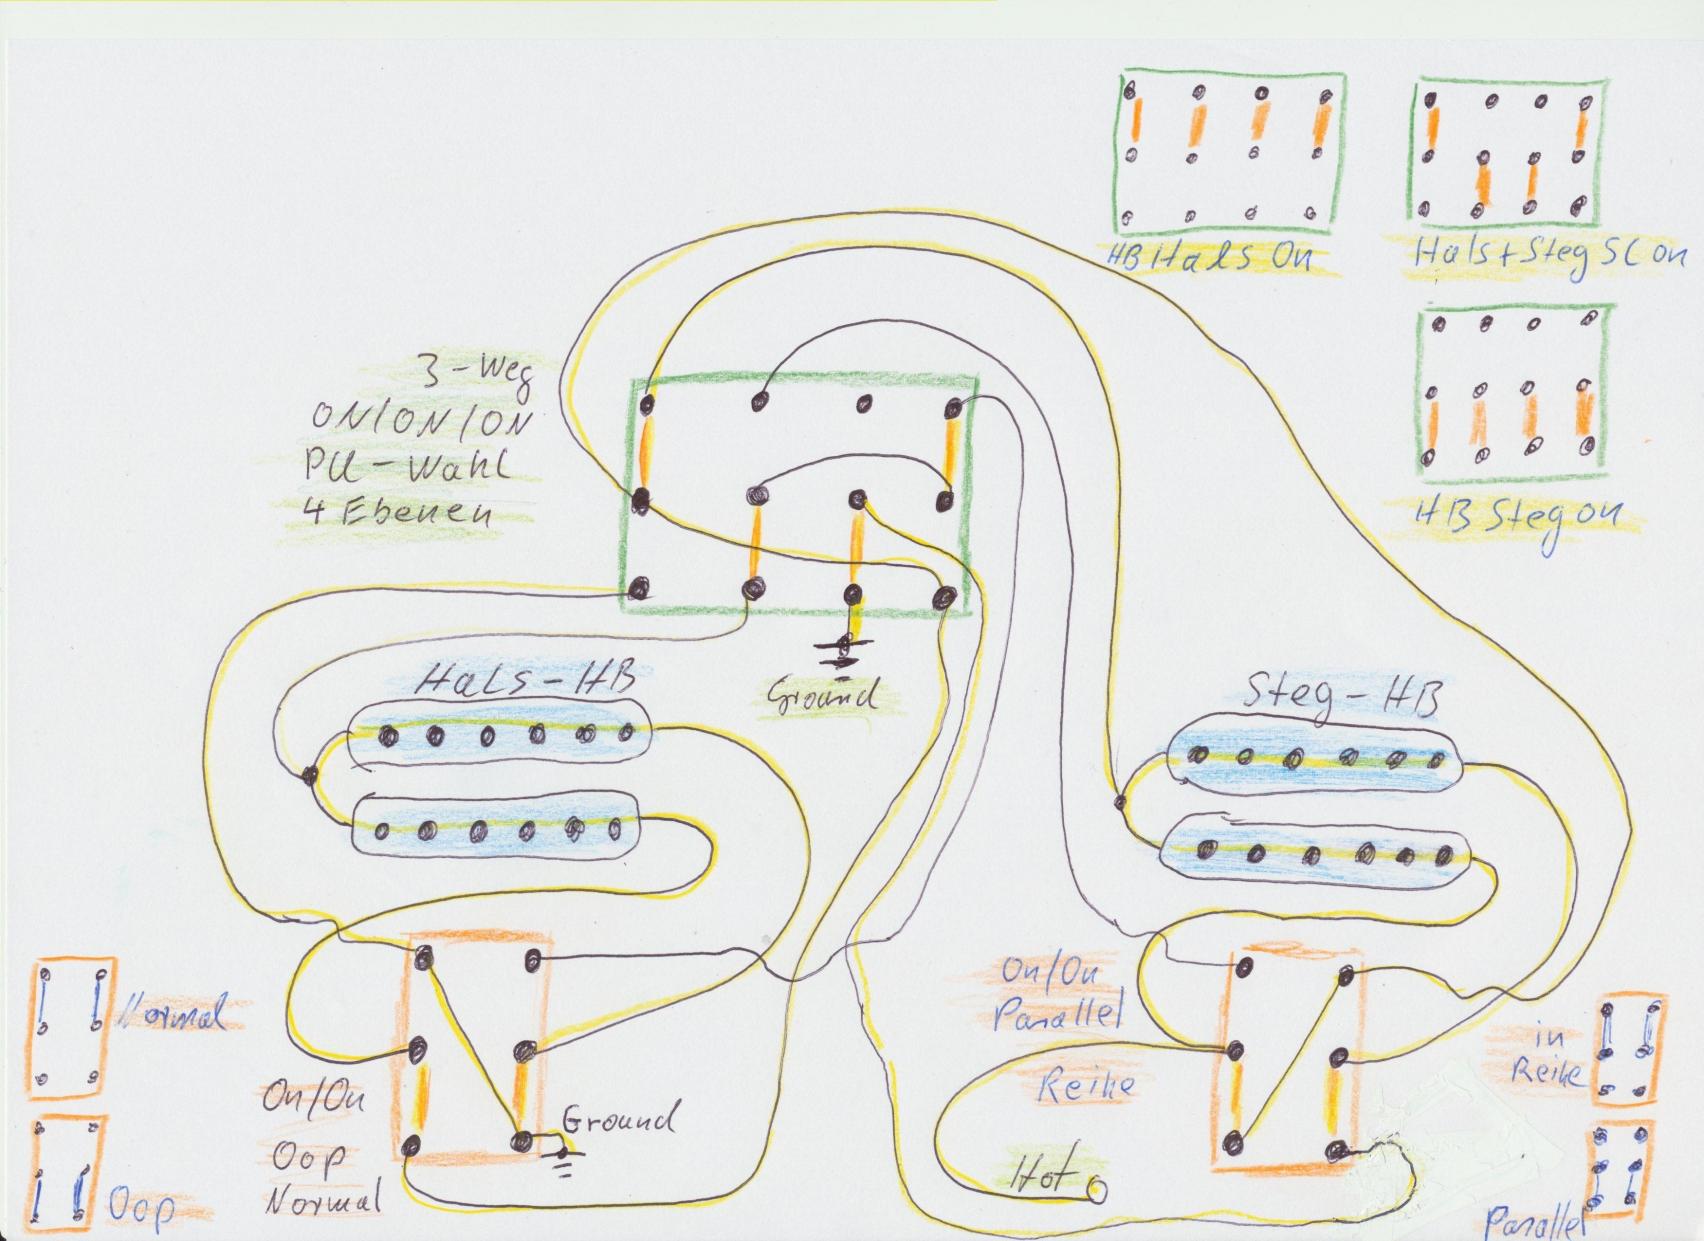 HB Hals On
Hals+Steg SC on
HB Steg on
3-Weg
ON/ON/ON
PU-Wahl
4 Ebenen
Ground
Hals-HB
Steg-HB
Normal
Oop
On/On
Oop
Normal
Ground
On/On
Parallel
Reihe
Hot
in
Reihe
Parallel